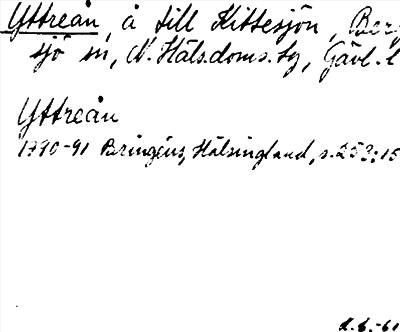 Yttreån, å till Kittesjön, Berg
sjö sn, N. Hälsdoms. tg, Gävl. l
Yttreån
1790-91 Bringéus, Hälsingland, s. 253:15
K. E. -61